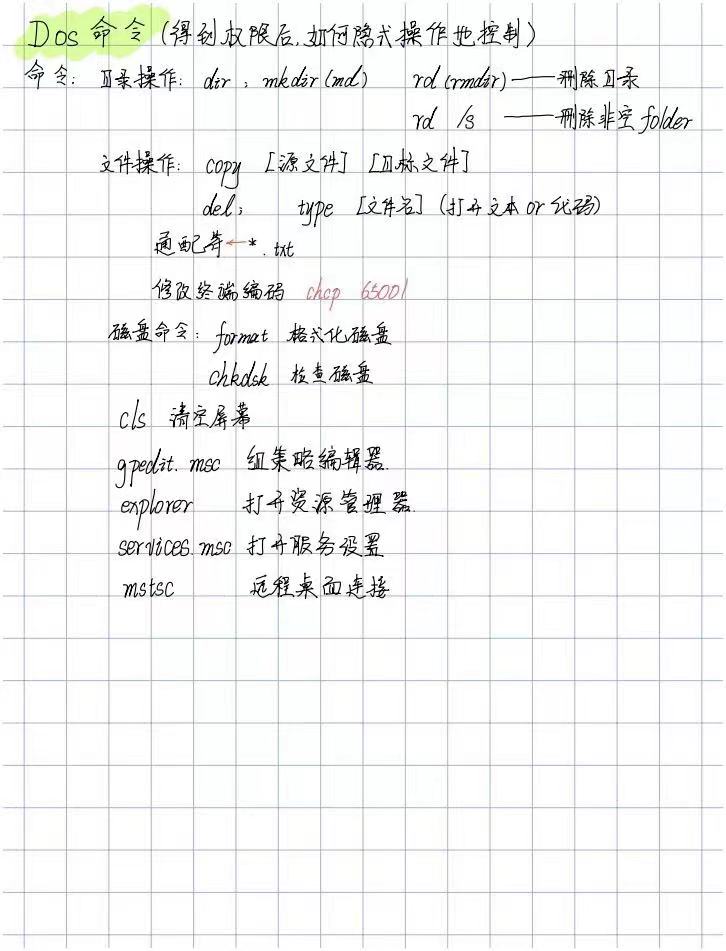 Dos 命令 (得到权限后, 如何隐式操作地控制)
命令: 目录操作: dir ; mkdir (md) rd (rmdir) —— 删除目录
rd /s —— 删除非空 folder
文件操作: copy [源文件] [目标文件]
del; type [文件名] (打开文本 or 代码)
通配符 ← *.txt
修改终端编码 chcp 65001
磁盘命令: format 格式化磁盘
chkdsk 检查磁盘
cls 清空屏幕
gpedit.msc 组策略编辑器.
explorer 打开资源管理器.
services.msc 打开服务设置
mstsc 远程桌面连接